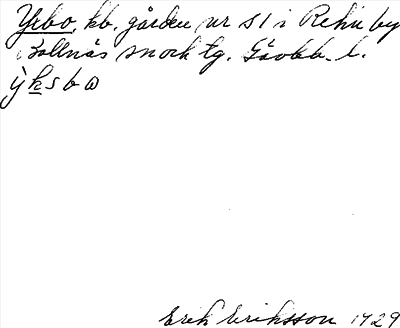 Yxbo, kb. gården nr 51 i Rehn by
Bollnäs snock tg. Gävleb. l.
ỳksbω
Erik Eriksson 1929